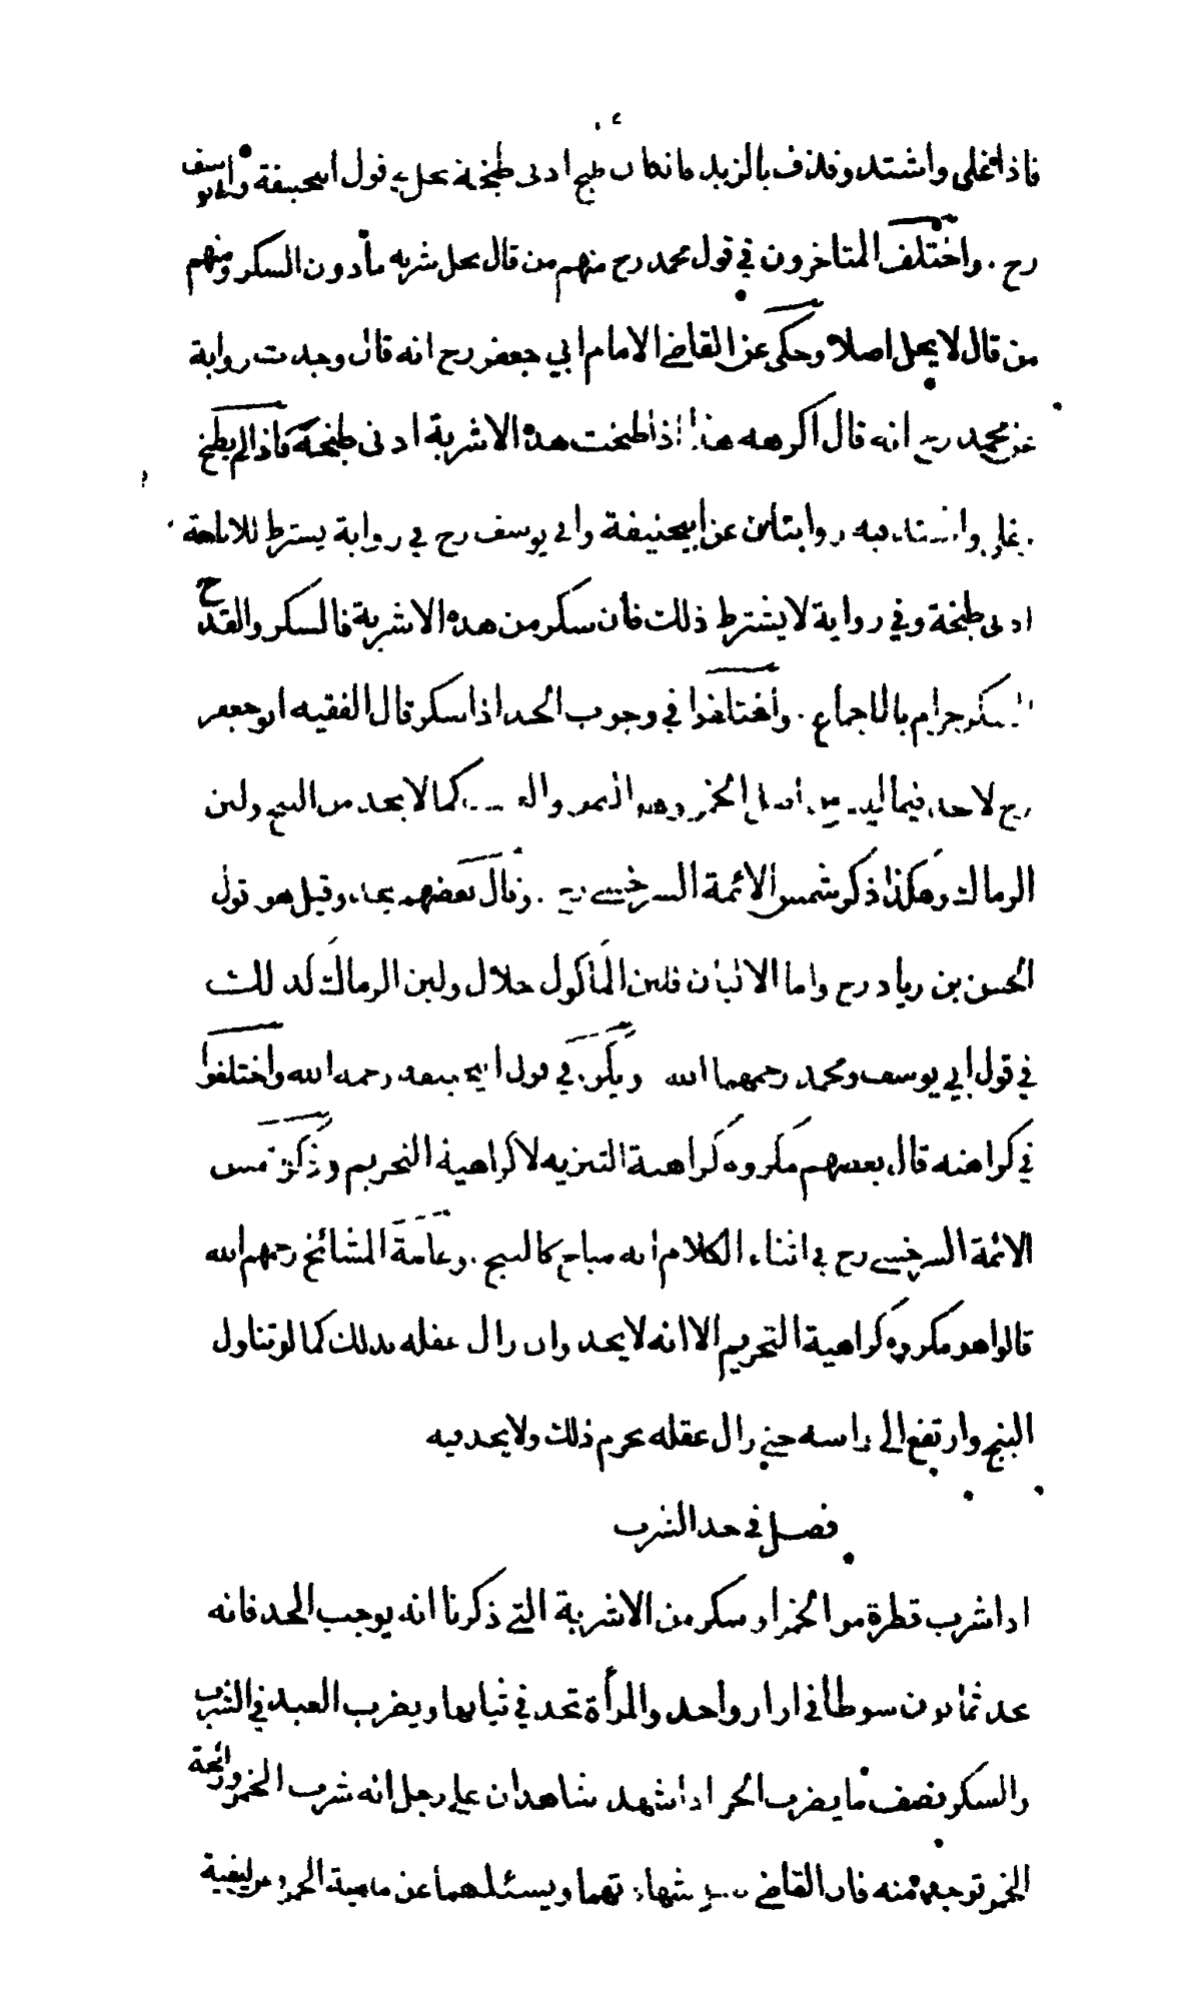 فاذا غلى واشتد وقذف بالزبد فانكان طبخ ادنى طبخة يحل في قول ابيحنيفة وابو يوسف
رح . واختلف المتاخرون في قول محمد رح منهم من قال يحل شربه مادون السكر ومنهم
من قال لا يحل اصلا وحكى عن القاضي الامام ابي جعفر رح انه قال وجدت رواية
عن محمد رح انه قال اكره هذا اذا طبخت هذه الاشربة ادنى طبخة فاذا لم يطبخ
واشتد فيه روايتان عن ابيحنيفة وابي يوسف رح في رواية يشترط للاباحة
ادنى طبخة وفي رواية لا يشترط ذلك فان سكر من هذه الاشربة فالسكر والقدح
المسكر حرام بالاجماع . واختلفوا في وجوب الحد اذا سكر قال الفقيه ابو جعفر
رح لا حد فيما ليس من اصل الخمر وهو التمر والعنب كما لا يحد من البنج ولبن
الرماك وهكذا ذكر شمس الائمة السرخسي رح . وقال بعضهم يحد وقيل هو قول
الحسن بن زياد رح واما الالبان فلبن المأكول حلال ولبن الرماك كذلك
في قول ابي يوسف ومحمد رحمهما الله ويكره في قول ابيحنيفة رحمه الله واختلفوا
في كراهته قال بعضهم مكروه كراهية التنزيه لا كراهية التحريم وذكر شمس
الائمة السرخسي رح في اثناء الكلام انه مباح كالبنج . وعامة المشائخ رحمهم الله
قالوا هو مكروه كراهية التحريم الا انه لا يحد وان زال عقله بذلك كما لو تناول
البنج وارتفع الى راسه حتى زال عقله يحرم ذلك ولا يحد فيه
فصل في حد الشرب
اذا شرب قطرة من الخمر او سكر من الاشربة التي ذكرنا انه يوجب الحد فانه
يحد ثمانون سوطا في ازار واحد والمرأة تحد في ثيابها ويضرب العبد في الشرب
والسكر نصف ما يضرب الحر اذا شهد شاهدان على رجل انه شرب الخمر ورائحة
الخمر توجد منه فان القاضي شهادتهما ويسئلهما عن ماهية الخمر وعن كيفية